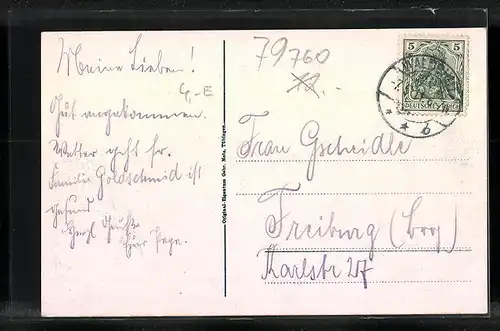 Meine Lieben!
Gut angekommen.
Wetter geht
Familie Goldschmid ist
gesund
Herzl. Grüße
Euer Papa.
79760
4,-E
Original-Eigentum Gebr. Metz, Tübingen.
5 5
DEUTSCHES REICH
* * b
Frau Gscheidle
Freiburg (Brg)
Karlstr 27